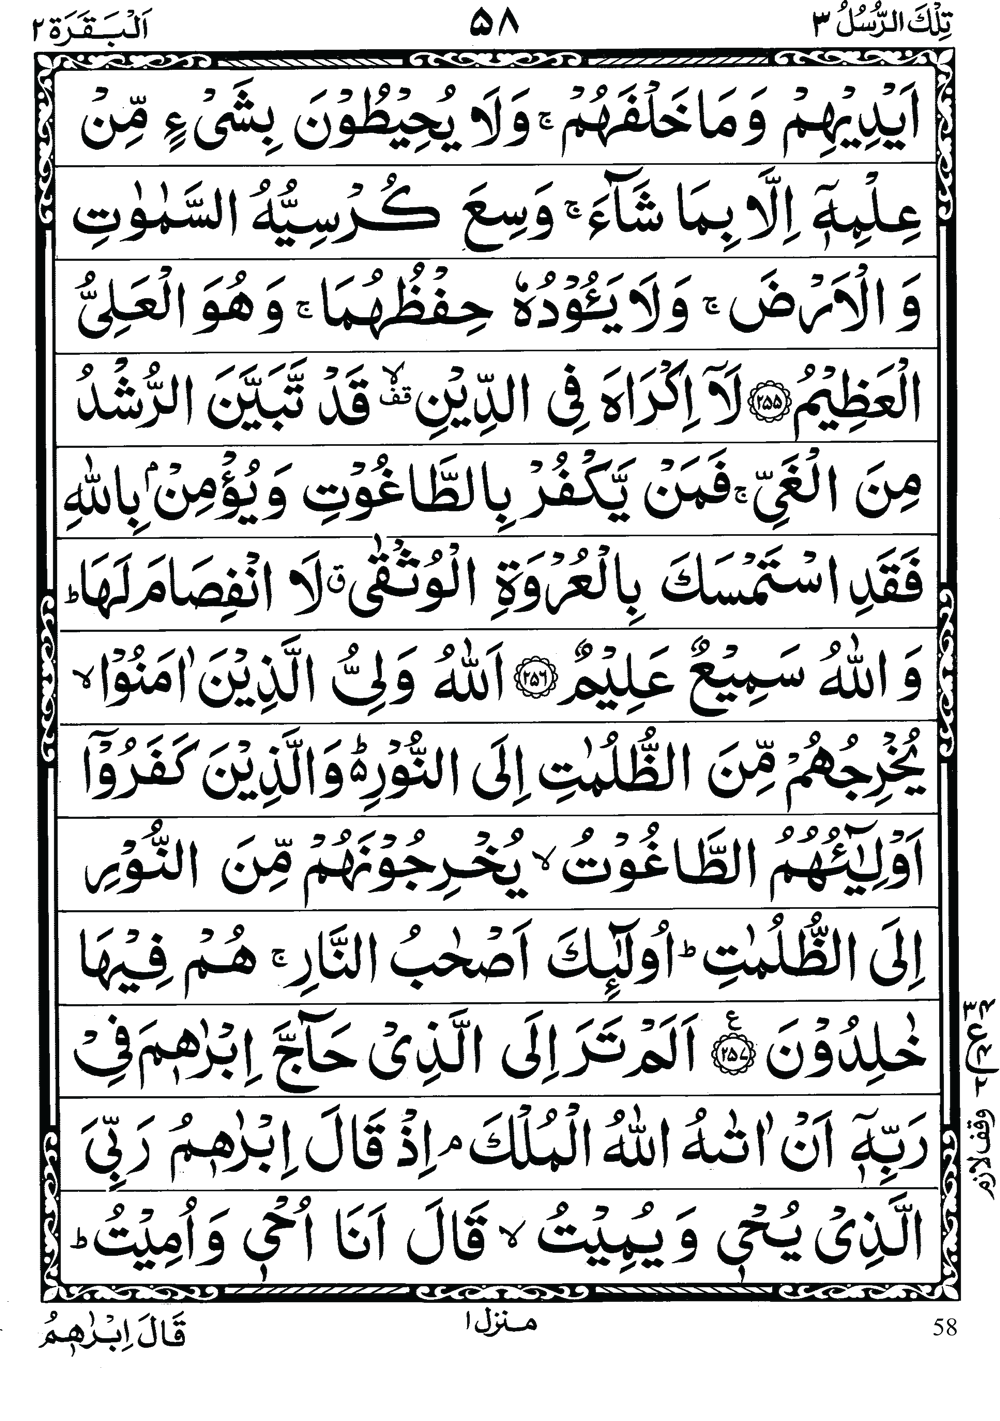 تِلْكَ الرُّسُلُ ٣ ۵۸ اَلْبَقَرَة ٢
اَيْدِيْهِمْ وَمَا خَلْفَهُمْ ۚ وَلَا يُحِيْطُوْنَ بِشَيْءٍ مِّنْ
عِلْمِهٖٓ اِلَّا بِمَا شَآءَ ۚ وَسِعَ كُرْسِيُّهُ السَّمٰوٰتِ
وَالْاَرْضَ ۚ وَلَا يَـُٔوْدُهٗ حِفْظُهُمَا ۚ وَهُوَ الْعَلِيُّ
الْعَظِيْمُ ﴿۲۵۵﴾ لَآ اِكْرَاهَ فِي الدِّيْنِ ۙقف قَدْ تَّبَيَّنَ الرُّشْدُ
مِنَ الْغَيِّ ۚ فَمَنْ يَّكْفُرْ بِالطَّاغُوْتِ وَيُؤْمِنْۢ بِاللّٰهِ
فَقَدِ اسْتَمْسَكَ بِالْعُرْوَةِ الْوُثْقٰى ق لَا انْفِصَامَ لَهَا ؕ
وَاللّٰهُ سَمِيْعٌ عَلِيْمٌ ﴿۲۵۶﴾ اَللّٰهُ وَلِيُّ الَّذِيْنَ اٰمَنُوْا ۙ
يُخْرِجُهُمْ مِّنَ الظُّلُمٰتِ اِلَى النُّوْرِ ؕ۬ وَالَّذِيْنَ كَفَرُوْٓا
اَوْلِيٰٓـُٔهُمُ الطَّاغُوْتُ ۙ يُخْرِجُوْنَهُمْ مِّنَ النُّوْرِ
اِلَى الظُّلُمٰتِ ؕ اُولٰٓئِكَ اَصْحٰبُ النَّارِ ۚ هُمْ فِيْهَا
خٰلِدُوْنَ ﴿۲۵۷﴾ ع اَلَمْ تَرَ اِلَى الَّذِيْ حَآجَّ اِبْرٰهٖمَ فِيْ
رَبِّهٖٓ اَنْ اٰتٰىهُ اللّٰهُ الْمُلْكَ ۘ اِذْ قَالَ اِبْرٰهٖمُ رَبِّيَ
الَّذِيْ يُحْيٖ وَيُمِيْتُ ۙ قَالَ اَنَا اُحْيٖ وَاُمِيْتُ ؕ
ع
وقف لازم
قَالَ اِبْرٰهٖمُ منزل ١ 58